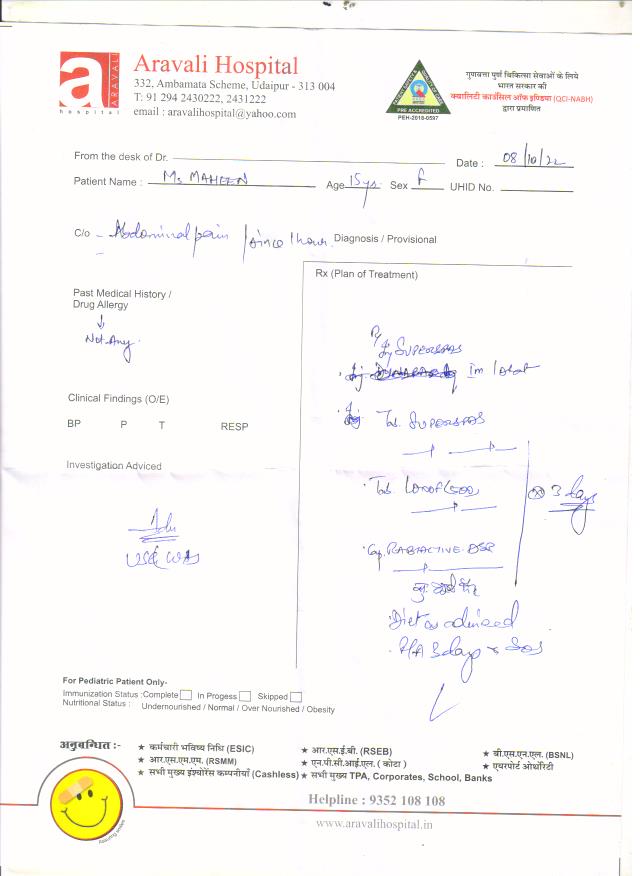 a
ARAVALI
hospital
Aravali Hospital
332, Ambamata Scheme, Udaipur - 313 004
T: 91 294 2430222, 2431222
email : aravalihospital@yahoo.com
PRE ACCREDITED
PEH-2018-0597
गुणवत्ता पुर्ण चिकित्सा सेवाओं के लिये
भारत सरकार की
क्वालिटी काउंसिल ऑफ इण्डिया (QCI-NABH)
द्वारा प्रमाणित
From the desk of Dr.
Date : 08/10/22
Patient Name : Ms MAHEEN Age 15ys Sex f UHID No.
C/o - Abdominal pain / since 1 hour. Diagnosis / Provisional
Rx (Plan of Treatment)
Past Medical History /
Drug Allergy
Not Any.
Rx
Inj SUPERSPAS
Inj. Im / stat
Clinical Findings (O/E)
BP P T RESP
Tab. SUPERSPAS
Investigation Adviced
Adv
USG W/A
Tab. LOROF (500)
x 3 days
Cap. RABIACTIVE-DSR
Diet as advised
R/A 3 days & SOS
For Pediatric Patient Only-
Immunization Status :Complete In Progess Skipped
Nutritional Status : Undernourished / Normal / Over Nourished / Obesity
अनुबन्धित :-
★ कर्मचारी भविष्य निधि (ESIC) ★ आर.एस.ई.बी. (RSEB) ★ बी.एस.एन.एल. (BSNL)
★ आर.एस.एम.एम. (RSMM) ★ एन.पी.सी.आई.एल. ( कोटा ) ★ एयरपोर्ट ऑथॉरिटी
★ सभी मुख्य इंश्योरेंस कम्पनीयाँ (Cashless) ★ सभी मुख्य TPA, Corporates, School, Banks
Helpline : 9352 108 108
www.aravalihospital.in